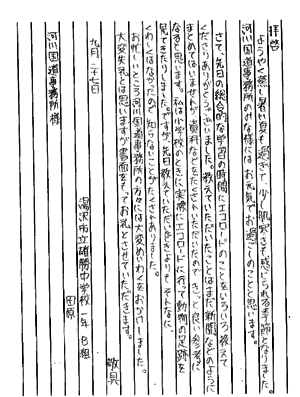 拝啓
ようやく蒸し暑い夏も過ぎて少し肌寒さを感じられる季節となりました。
河川国道事務所のみな様にはお元気でお過ごしのことと思います。
さて、先日の総合的な学習の時間にエコロードのことをいろいろ教えて
くださりありがとうございました。教えていただいたことはまだ新聞などのように
まとめてはいませんが資料などをたくさんいただいたのできっと良い参考に
なると思います。私は小学校のときに実際にエコロードに行って動物の足跡を
見てきたりしました。ですが先日教えていただいたときよりも、そんなに、
くわしくはなかったので知らないことがたくさんありました。
お忙しいところ河川国道事務所の方々には大変めいわくをおかけしました。
大変失礼とは思いますが書面をもってお礼とさせていただきます。
敬具
九月二十七日
湯沢市立雄勝中学校一年B組
河川国道事務所様